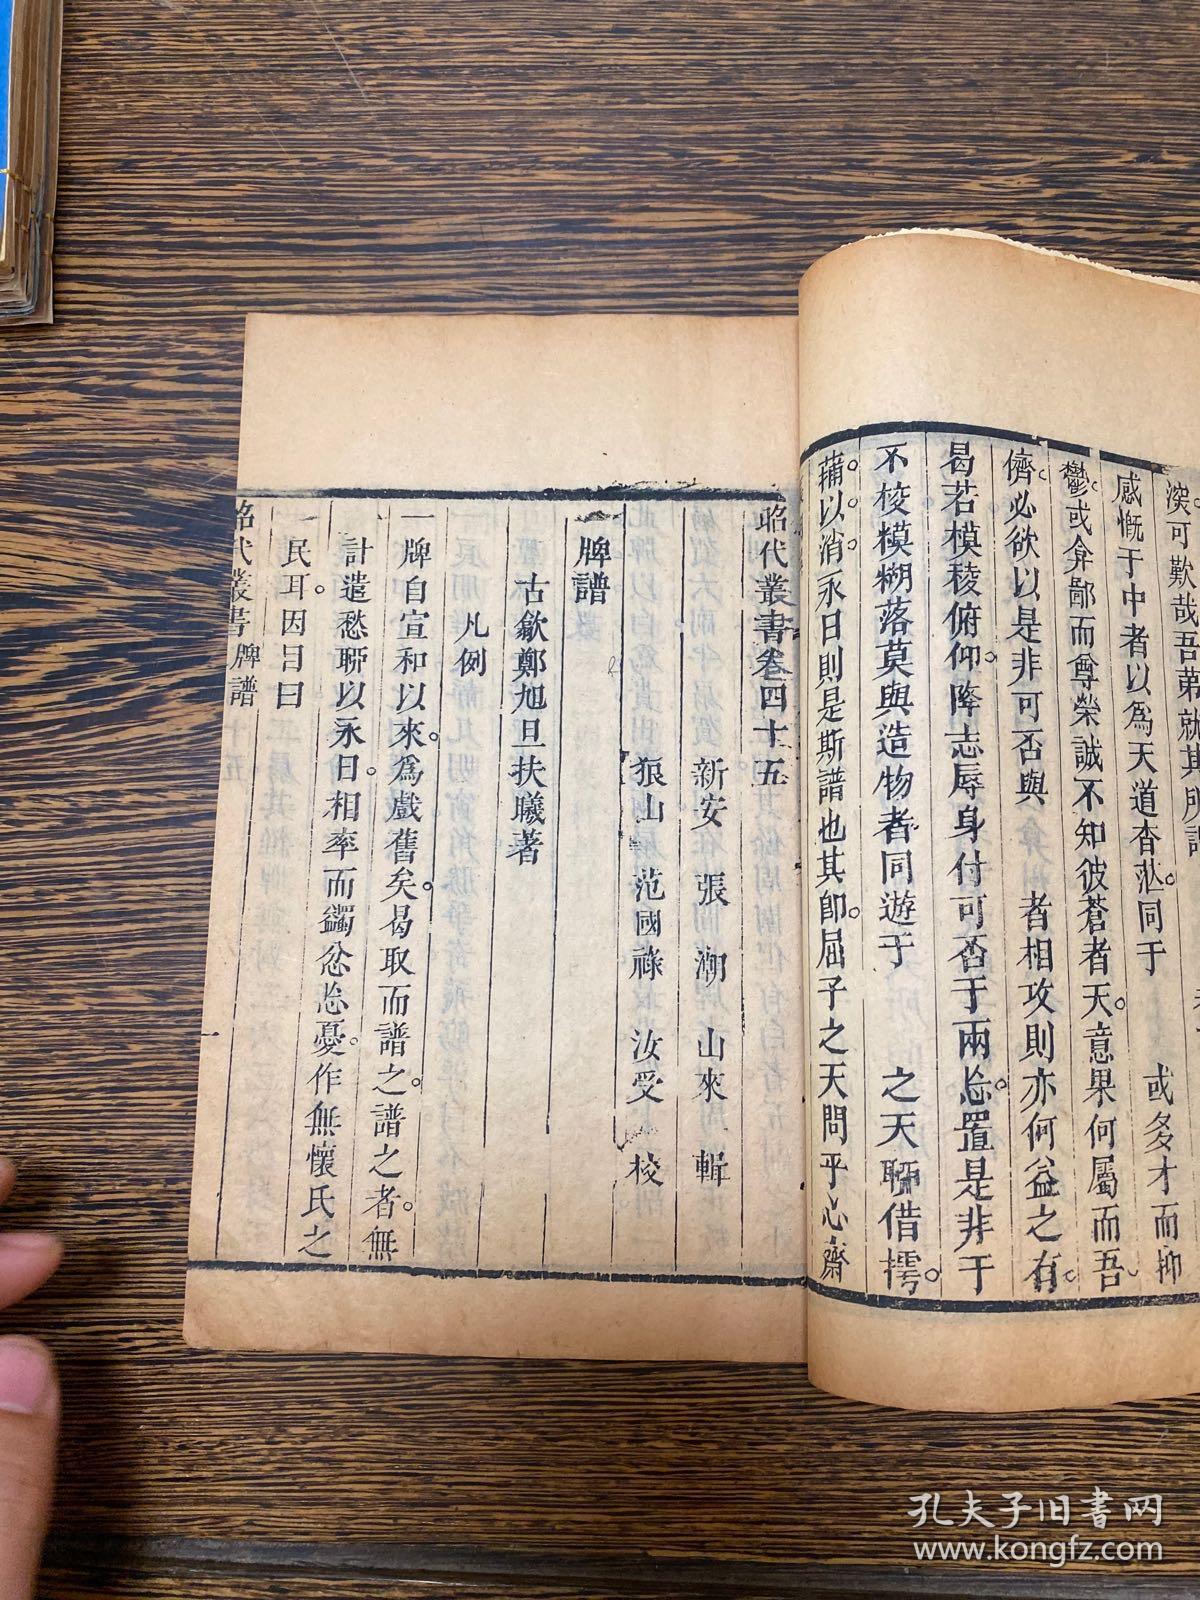 渙可歎哉吾第就其所
感慨于中者以爲天道杳茫同于 或多才而抑
鬱或弇鄙而尊榮誠不知彼蒼者天意果何屬而吾
儕必欲以是非可否與 者相攻則亦何益之有
曷若模稜俯仰降志辱身付可否于兩忘置是非于
不校模糊落莫與造物者同遊于 之天聊借摴
蒱以消永日則是斯譜也其卽屈子之天問乎心齋
昭代叢書卷四十五
新安 張 潮 山來 輯
狼山 范國祿 汝受 校
牌譜
古歙鄭旭旦扶曦著
凡例
一牌自宣和以來爲戲舊矣曷取而譜之譜之者無
計遣愁聊以永日相率而蠲忿忘憂作無懷氏之
民耳因目曰
昭代叢書 牌譜 一
孔夫子旧书网
www.kongfz.com